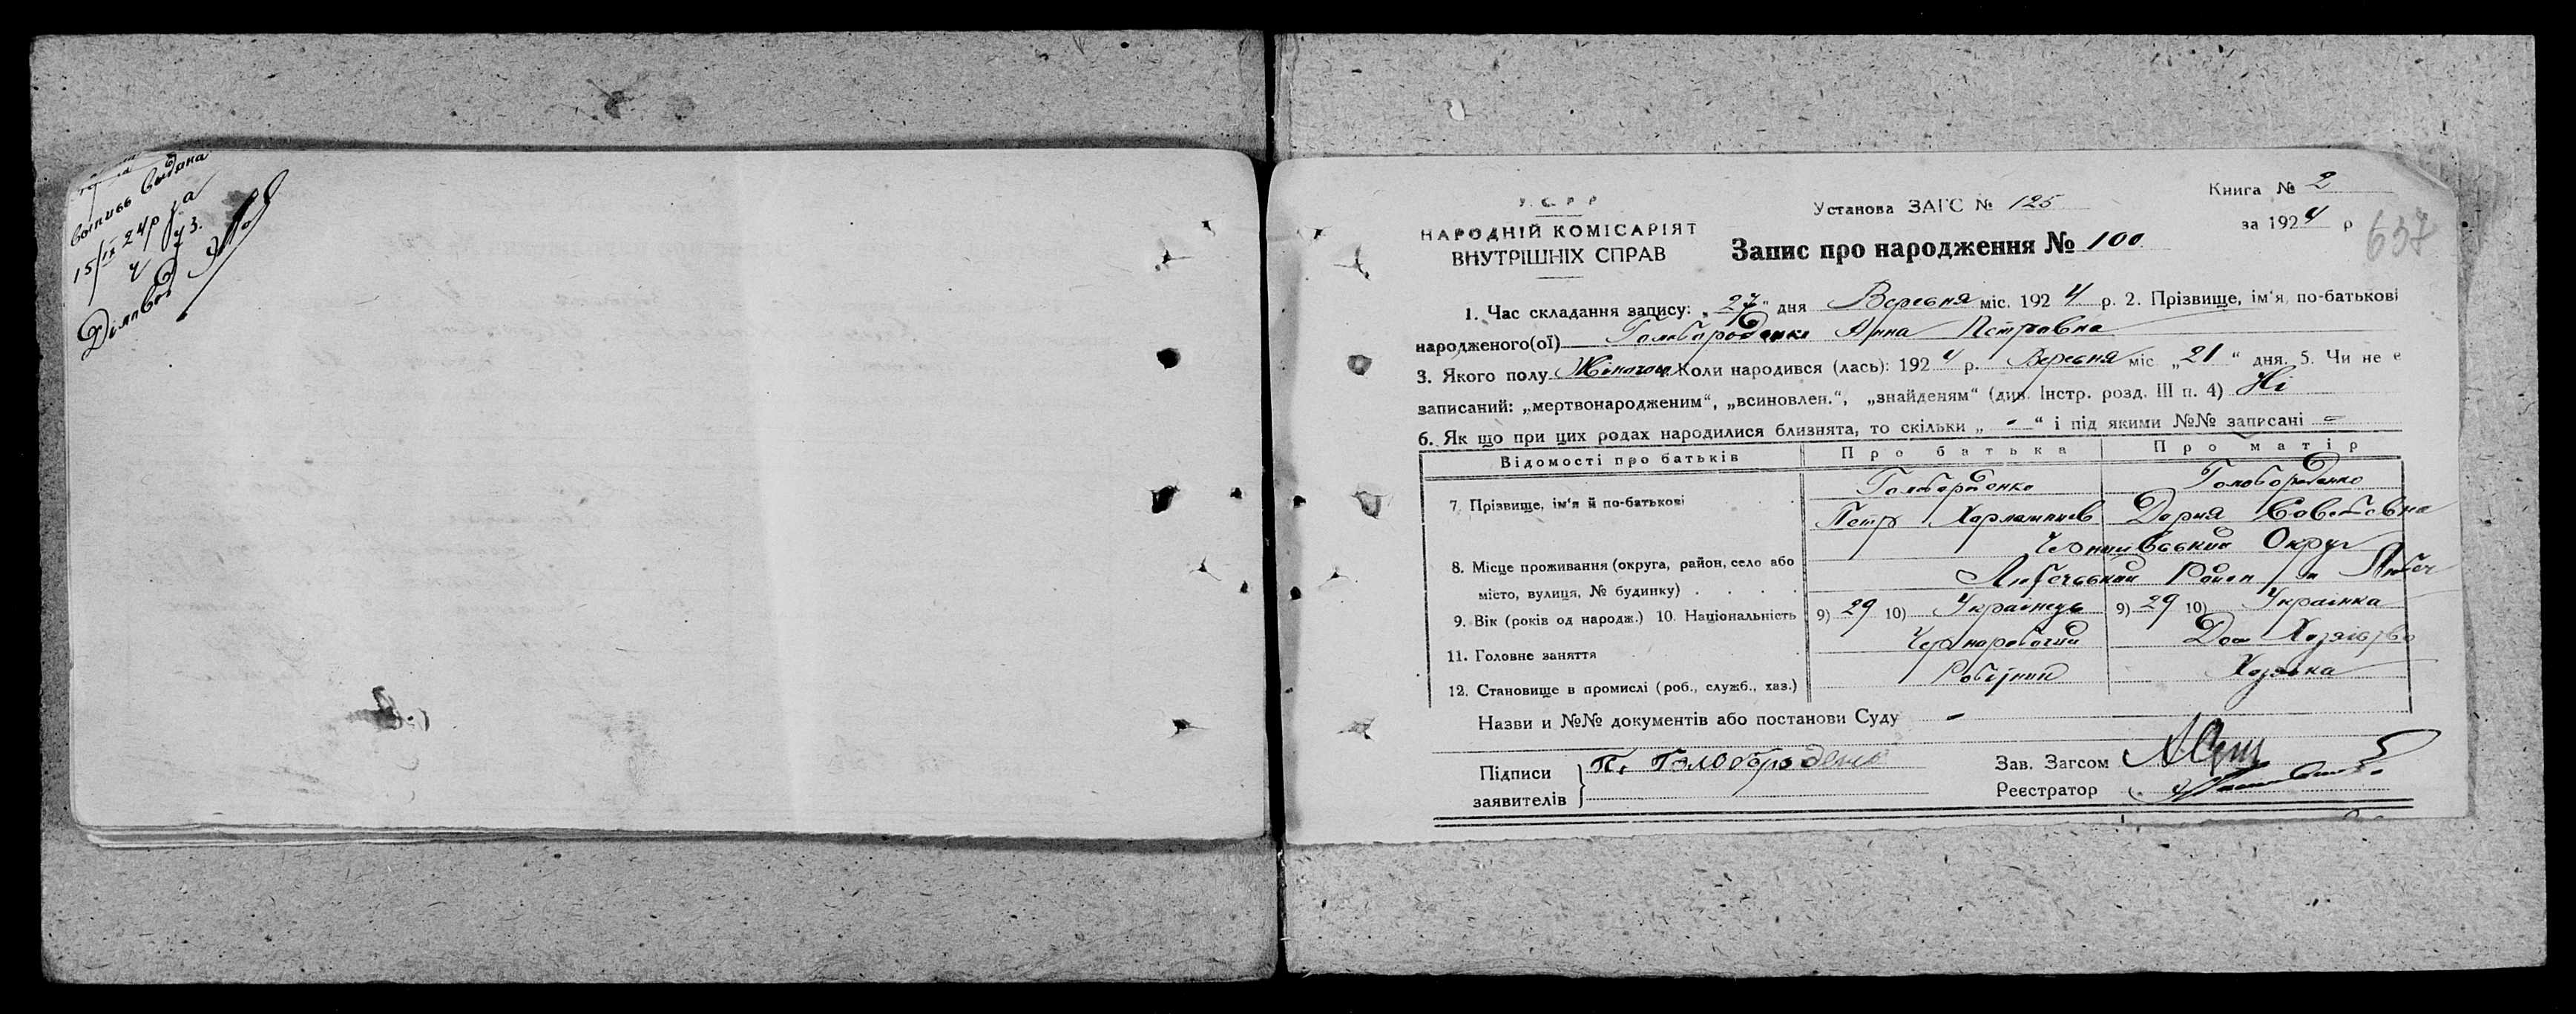 выпись выдана
15/IX 24р за
Діловод
У. С. Р. Р.
НАРОДНІЙ КОМІСАРІЯТ
ВНУТРІШНІХ СПРАВ
Установа ЗАГС № 125
Книга № 2
за 1924 р
637
Запис про народження № 100
1. Час складання запису: „27“ дня Вересня міс. 1924 р. 2. Прізвище, ім‘я, по-батькові
народженого(ої) Голобороденко Анна Петровна
3. Якого полу Жіночого Коли народився (лась): 1924 р. Вересня міс „21“ дня. 5. Чи не є
записаний: „мертвонародженим“, „всиновлен.“, „знайденям“ (див. Інстр. розд. III п. 4) Ні
6. Як що при цих родах народилися близнята, то скільки „-“ і під якими №№ записані =
Відомості про батьків Про батька Про матір
7. Прізвище, ім‘я й по-батькові Голобороденко Голобороденко
Петр Харлампиев Дария Савотевна
8. Місце проживання (округа, район, село або Чернигівський Округ
місто, вулиця, № будинку) . . . . Любечський Район м Любеч
9. Вік (років од народж.) 10. Національність 9) 29 10) Українець 9) 29 10) Українка
11. Головне заняття Чернорабочий Дом Хозяйство
12. Становище в промислі (роб., служб., хаз.) Робітник Хозяйка
Назви и №№ документів або постанови Суду -
Підписи П. Голобороденко
заявителів
Зав. Загсом
Реєстратор